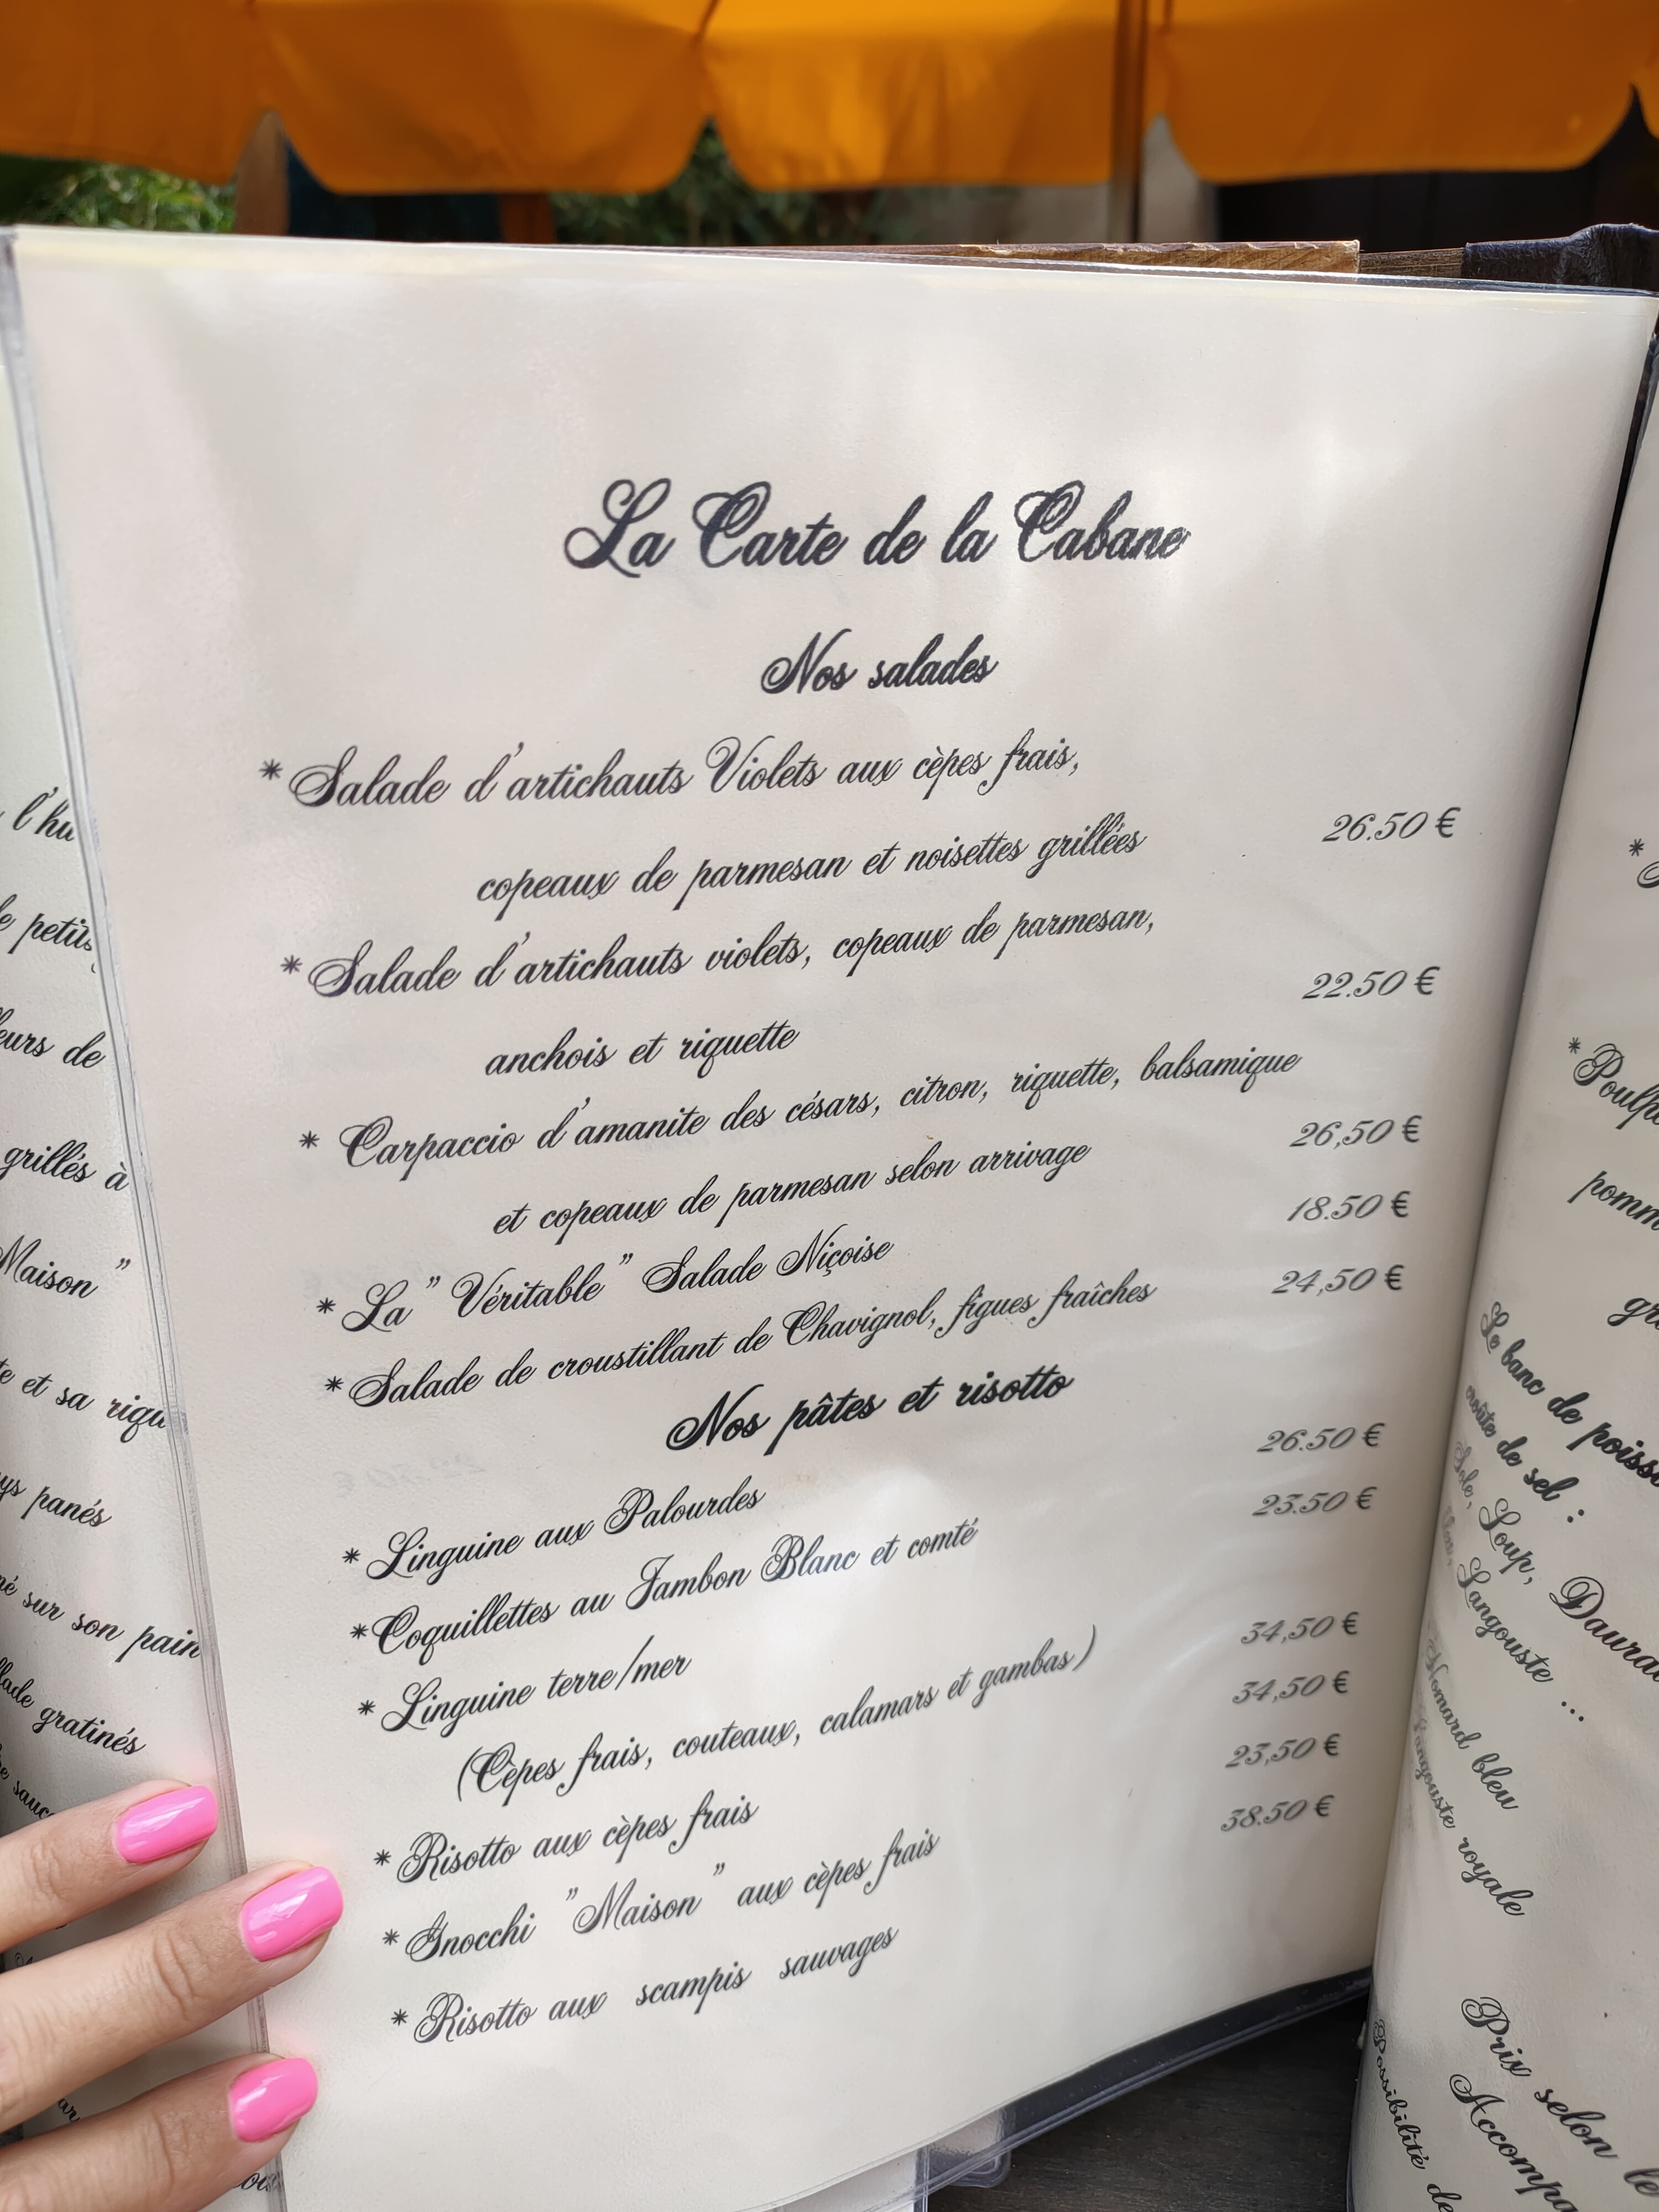 l'hu
petits
eurs de
grillés à
Maison "
et sa riqu
panés
sur son pain
gratinés
La Carte de la Cabane
Nos salades
* Salade d'artichauts Violets aux cèpes frais,
copeaux de parmesan et noisettes grillées 26.50 €
* Salade d'artichauts violets, copeaux de parmesan,
anchois et riquette 22.50 €
* Carpaccio d'amanite des césars, citron, riquette, balsamique
et copeaux de parmesan selon arrivage 26,50 €
* La " Véritable " Salade Niçoise 18.50 €
* Salade de croustillant de Chavignol, figues fraîches 24,50 €
Nos pâtes et risotto
* Linguine aux Palourdes 26.50 €
* Coquillettes au Jambon Blanc et comté 23.50 €
* Linguine terre/mer 34,50 €
(Cèpes frais, couteaux, calamars et gambas)
* Risotto aux cèpes frais 34,50 €
* Gnocchi "Maison " aux cèpes frais 23,50 €
* Risotto aux scampis sauvages 38.50 €
*
* Poulpe
pomm
Le banc de poiss
croûte de sel :
Sole, Loup, Daura
Langouste ...
Homard bleu
Langouste royale
Prix selon le
Accompa
Possibilité de